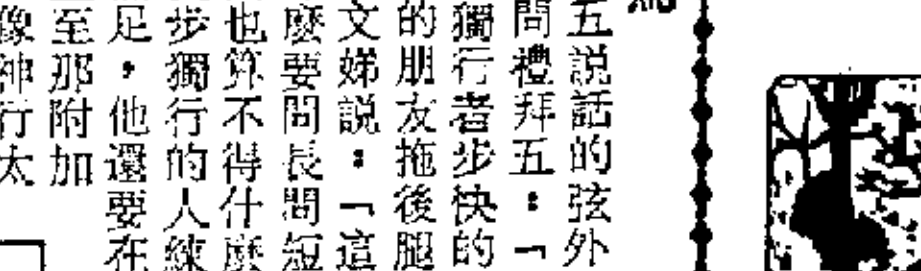 五說話的弦外
問禮拜五：「
獨行者步快的
的朋友拖後腿
文娣說：「這
麼要問長問短
也算不得什麼
步獨行的人練
足，他還要在
至那附加
像神行太